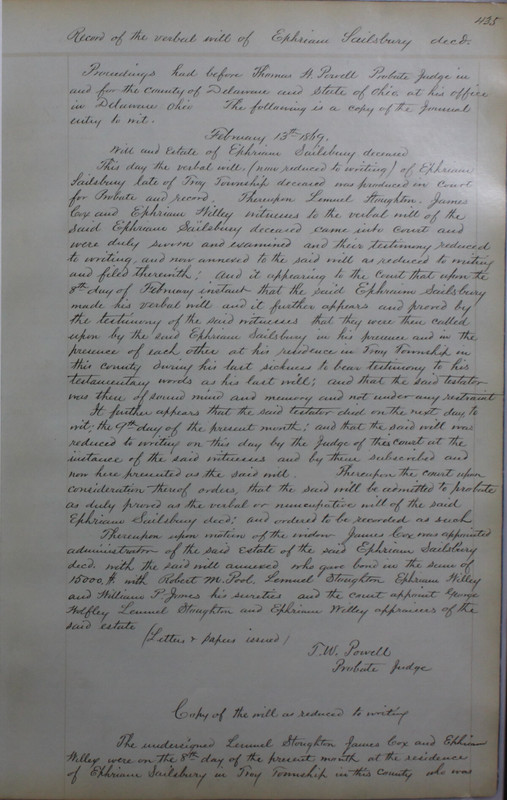 435
Record of the verbal will of Ephriam Sailsbury decd.
Proceedings had before Thomas W. Powell Probate Judge in
and for the County of Delaware and State of Ohio at his office
in Delaware Ohio The following is a copy of the Journal
entry to wit.
February 13th 1869.
Will and Estate of Ephriam Sailsbury deceased
This day the verbal will (now reduced to writing) of Ephriam
Sailsbury late of Troy Township deceased was produced in Court
for Probate and record. Thereupon Lemuel Stoughton, James
Cox and Ephriam Willey witnesses to the verbal will of the
said Ephriam Sailsbury deceased came into Court and
were duly sworn and examined and their testimony reduced
to writing, and now annexed to the said will as reduced to writing
and filed therewith; And it appearing to the Court that upon the
8th day of February instant that the said Ephraim Sailsbury
made his verbal will and it further appears and proved by
the testimony of the said witnesses that they were then called
upon by the said Ephriam Sailsbury in his presence and in the
presence of each other at his residence in Troy Township in
this county during his last sickness to bear testimony to his
testamentary words as his last will; and that the said testator
was then of sound mind and memory and not under any restraint
It further appears that the said testator died on the next day to
wit; the 9th day of the present month; and that the said will was
reduced to writing on this day by the Judge of this court at the
instance of the said witnesses and by them subscribed and
now here presented as the said will. Thereupon the court upon
consideration thereof orders, that the said will be admitted to probate
as duly proved as the verbal or nuncupative will of the said
Ephriam Sailsbury decd; and ordered to be recorded as such
Thereupon upon motion of the widow James Cox was appointed
administrator of the said Estate of the said Ephriam Sailsbury
decd. with the said will annexed who gave bond in the sum of
15000,$ with Robert M. Pool Lemuel Stoughton Ephriam Willey
and William P. Jones his sureties and the court appoint George
Wolfley Lemuel Stoughton and Ephriam Willey appraisers of the
said estate
(Letters & papers issued)
T. W. Powell
Probate Judge
Copy of the will as reduced to writing
The undersigned Lemuel Stoughton James Cox and Ephriam
Willey were on the 8th day of the present month at the residence
of Ephriam Sailsbury in Troy Township in this County who was